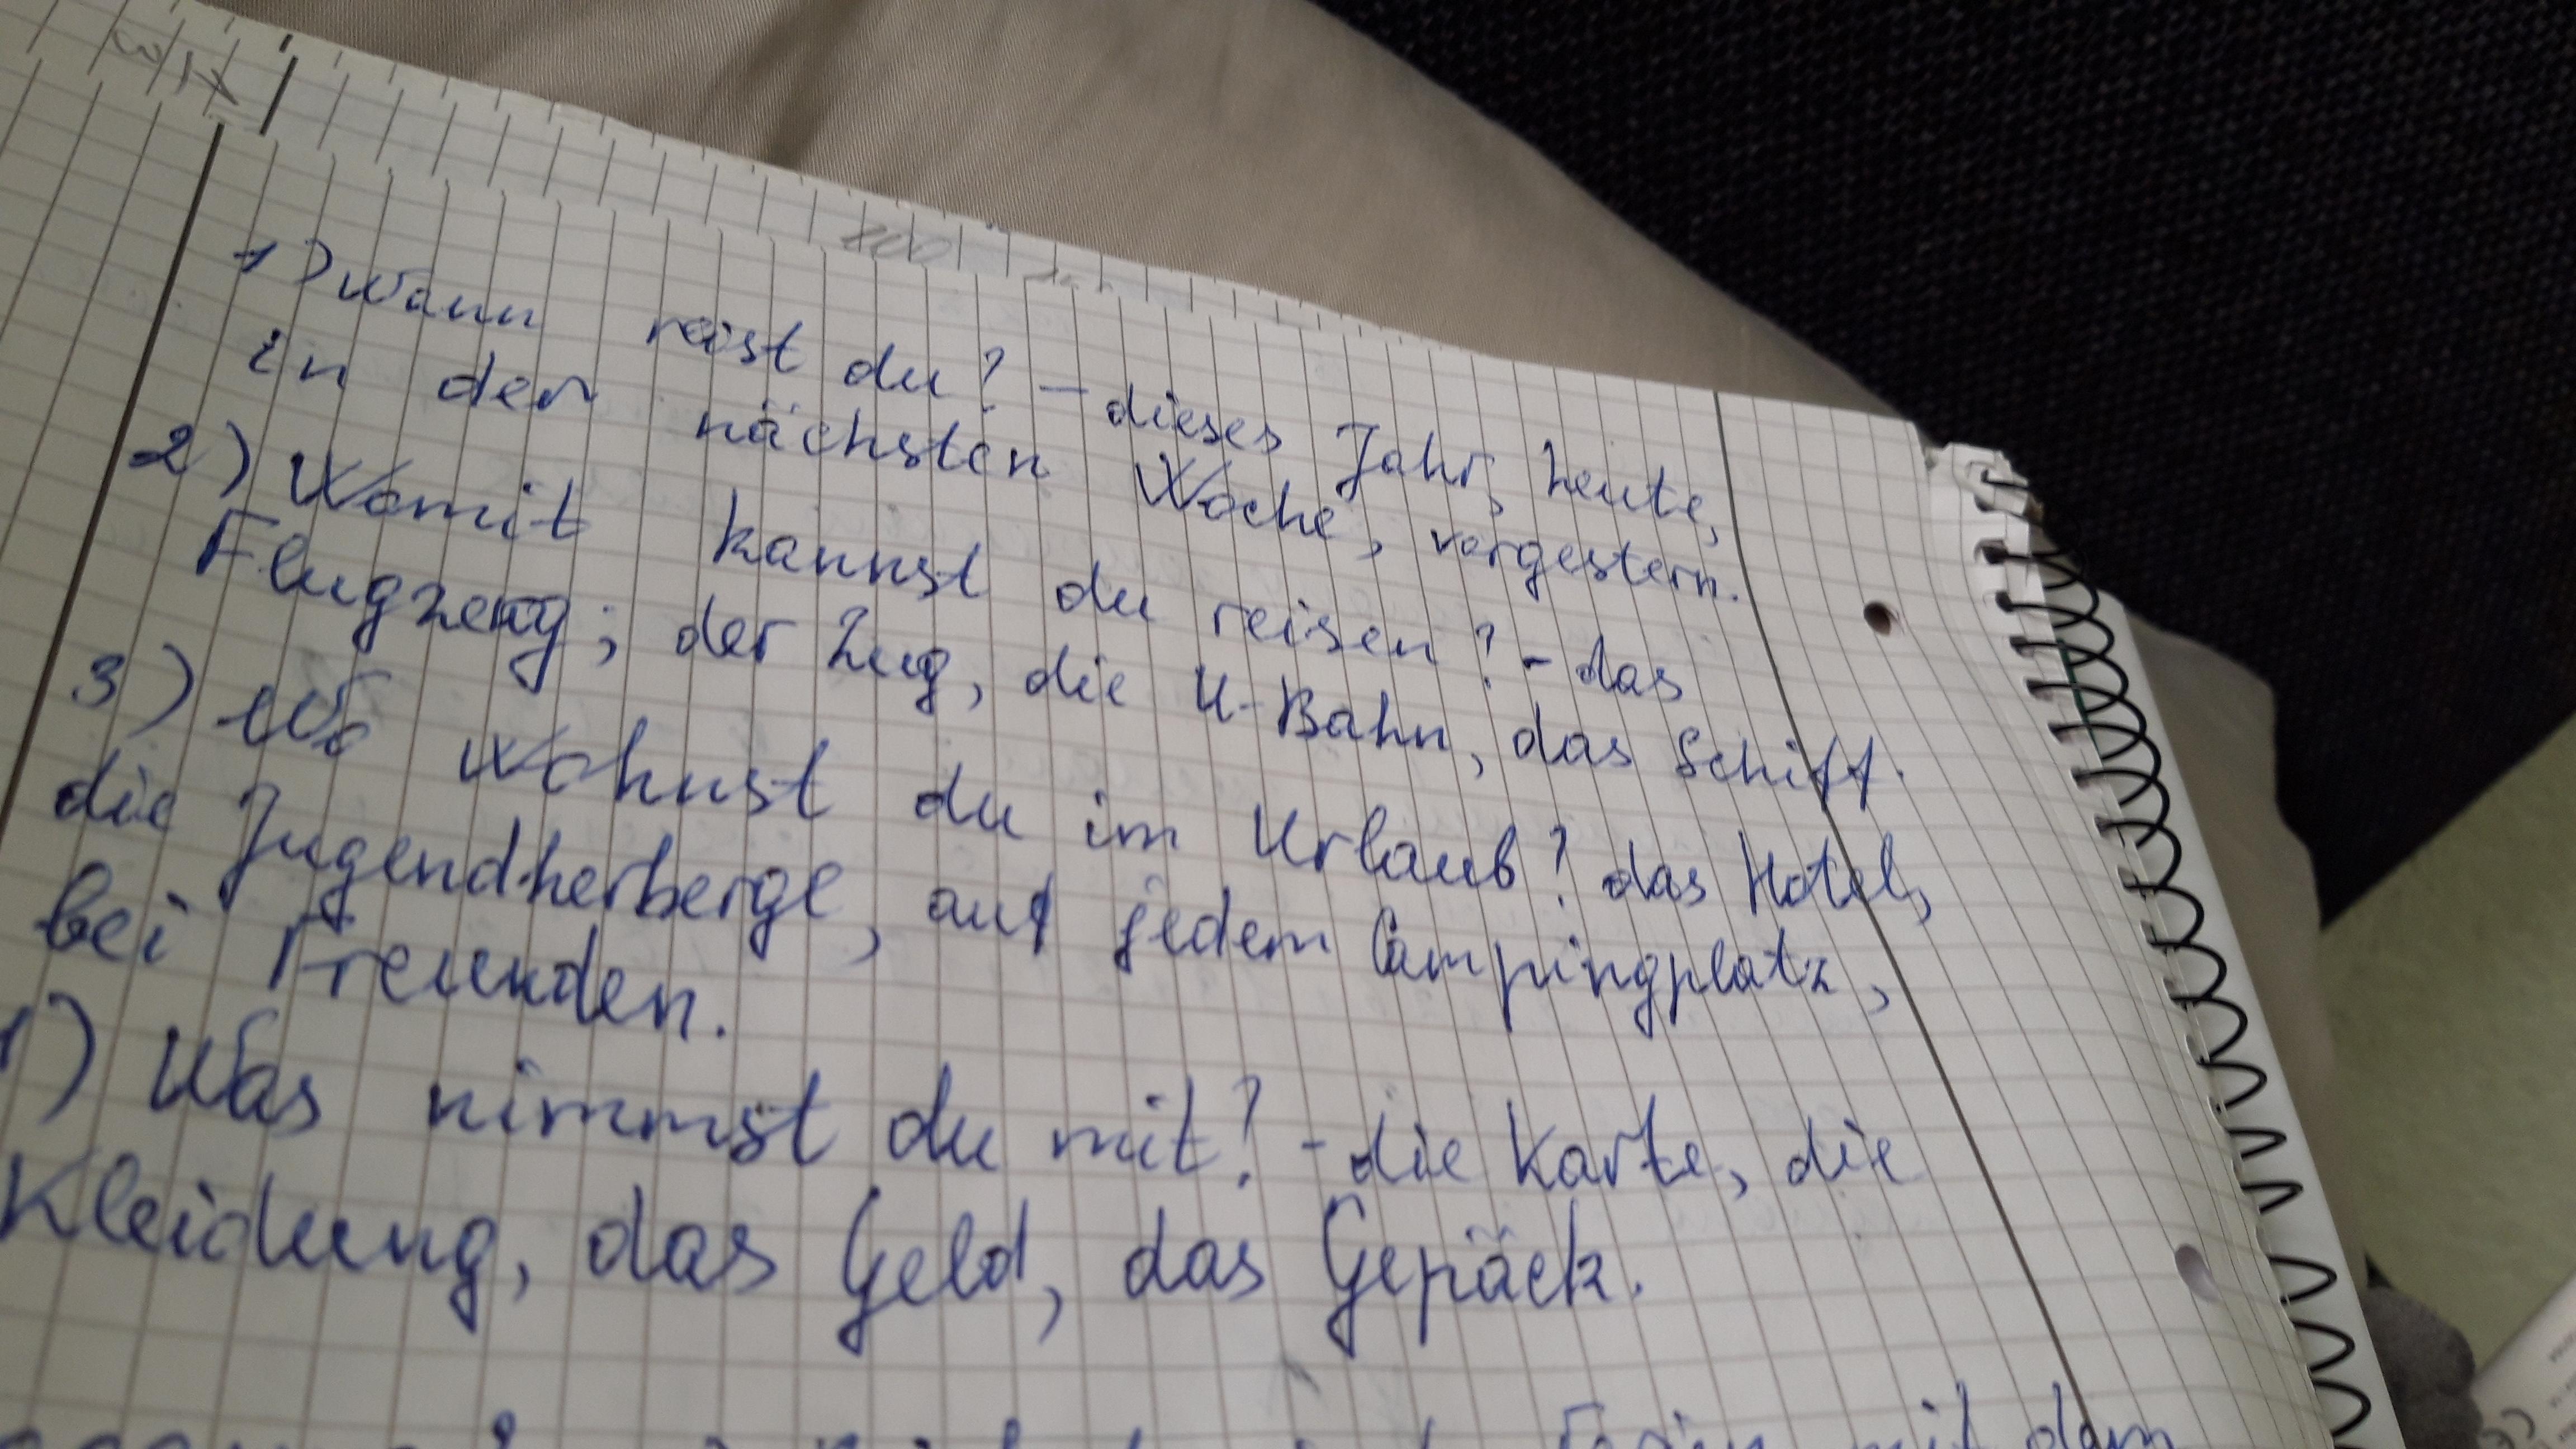 1) Wann reist du? - dieses Jahr, heute,
in der nächsten Woche, vorgestern.
2) Womit kannst du reisen? - das
Flugzeug; der Zug, die U-Bahn, das Schiff.
3) Wo wohnst du im Urlaub? das Hotel,
die Jugendherberge, auf jedem Campingplatz,
bei Freunden.
1) Was nimmst du mit? - die Karte, die
Kleidung, das Geld, das Gepäck.
mit dem